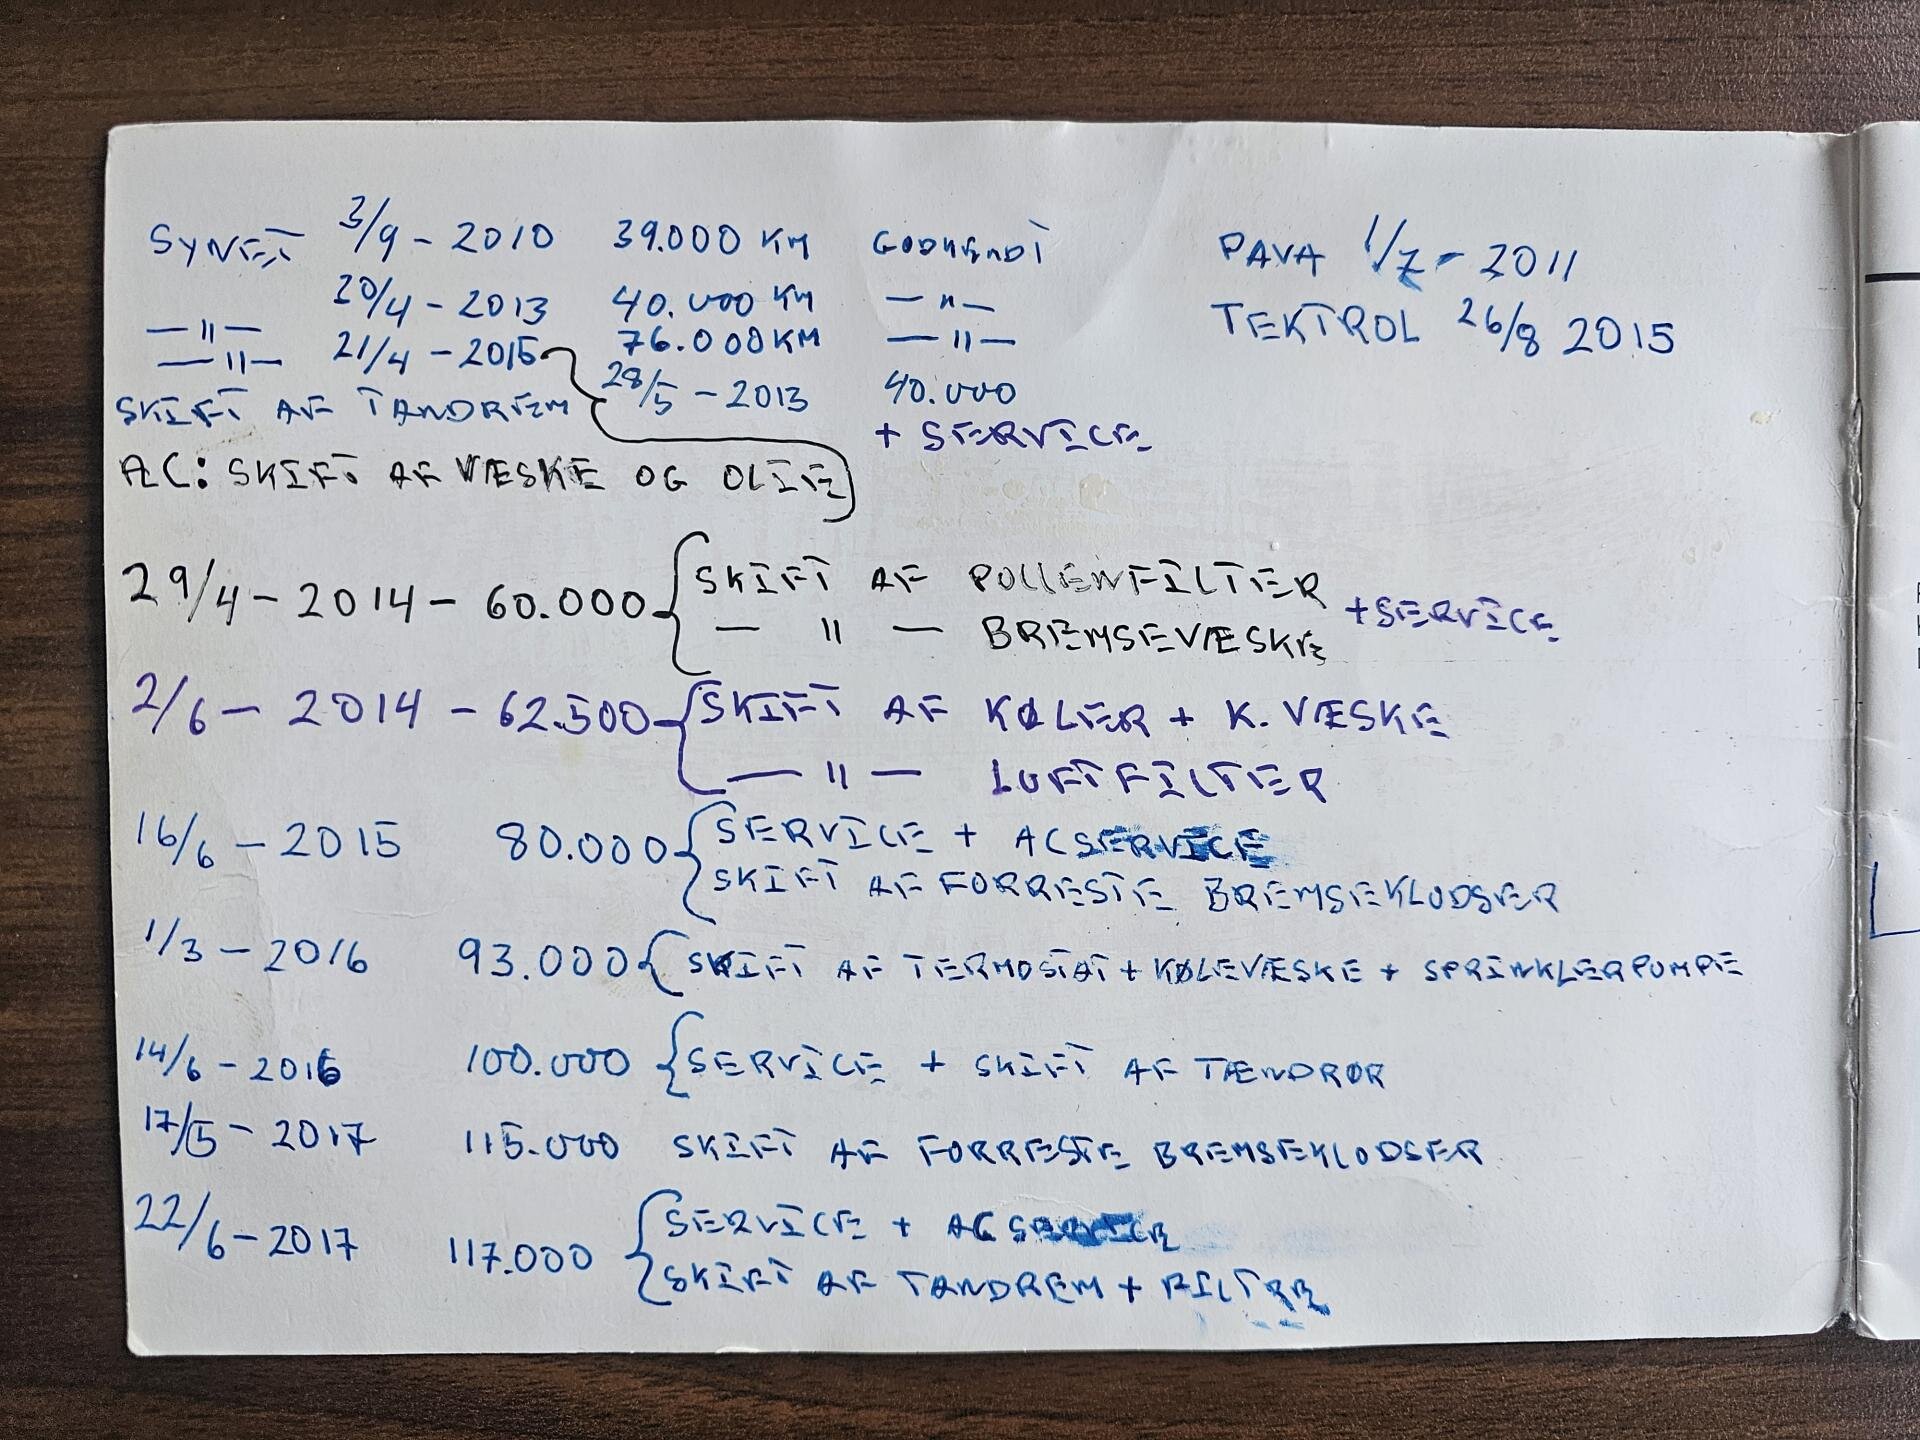 SYNET 3/9 - 2010 39.000 KM GODKENDT
PAVA 1/7 - 2011
— 〃 — 20/4 - 2013 40.000 KM — 〃 —
TEKTROL 26/8 2015
— 〃 — 21/4 - 2015 76.000 KM — 〃 —
SKIFT AF TANDREM 28/5 - 2013 40.000
+ SERVICE
AC: SKIFT AF VÆSKE OG OLIE
29/4 - 2014 - 60.000 { SKIFT AF POLLENFILTER
— 〃 — BREMSEVÆSKE + SERVICE
2/6 - 2014 - 62.500 { SKIFT AF KØLER + K. VÆSKE
— 〃 — LUFTFILTER
16/6 - 2015 80.000 { SERVICE + AC SERVICE
SKIFT AF FORRESTE BREMSEKLODSER
1/3 - 2016 93.000 { SKIFT AF TERMOSTAT + KØLEVÆSKE + SPRINKLERPUMPE
14/6 - 2016 100.000 { SERVICE + SKIFT AF TÆNDRØR
17/5 - 2017 115.000 SKIFT AF FORRESTE BREMSEKLODSER
22/6 - 2017 117.000 { SERVICE + AC SERVICE
SKIFT AF TANDREM + FILTER